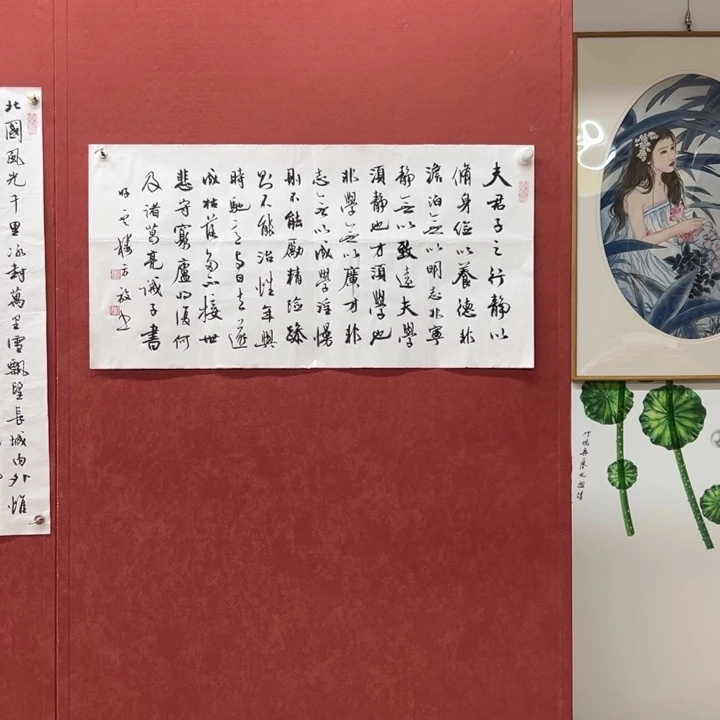 夫君子之行靜以
脩身儉以養德非
澹泊無以明志非寧
靜無以致遠夫學
須靜也才須學也
非學無以廣才非
志無以成學淫慢
則不能勵精險躁
則不能治性年與
時馳意與日去遂
成枯落多不接世
悲守窮廬將復何
及諸葛亮誡子書
北國風光千里冰封萬里雪飄望長城內外惟